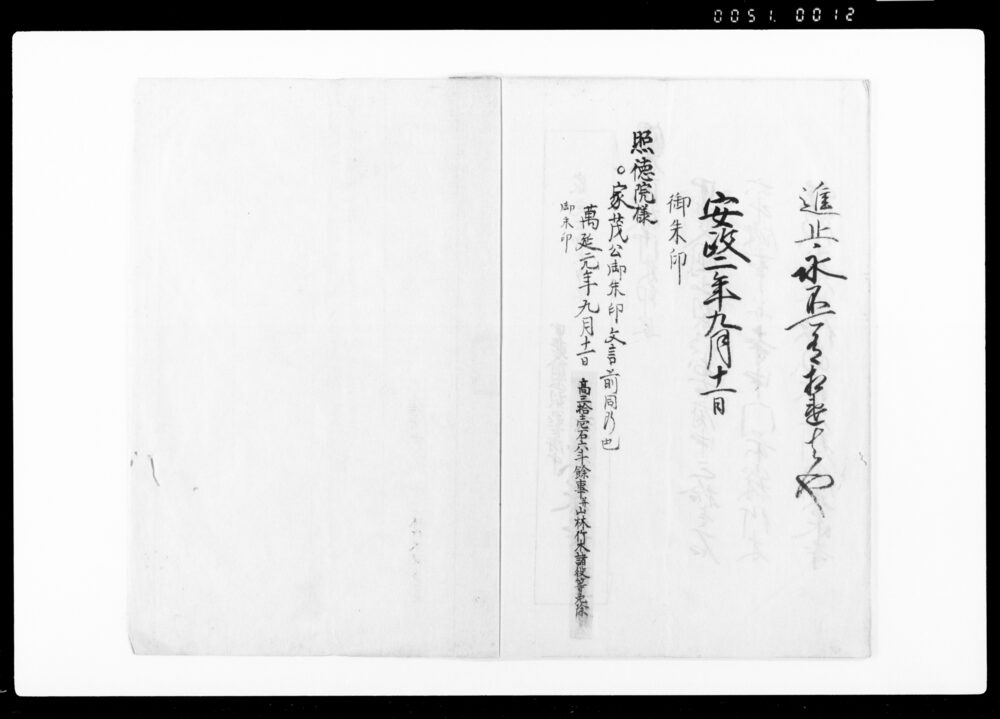 0051. 0012
進止永不可有相違者也
安政二年九月十一日
御朱印
照徳院様
○家茂公御朱印文言前同乃也
萬延元年九月十一日 高三拾壱石六斗餘事并山林竹木諸役等免除
御朱印